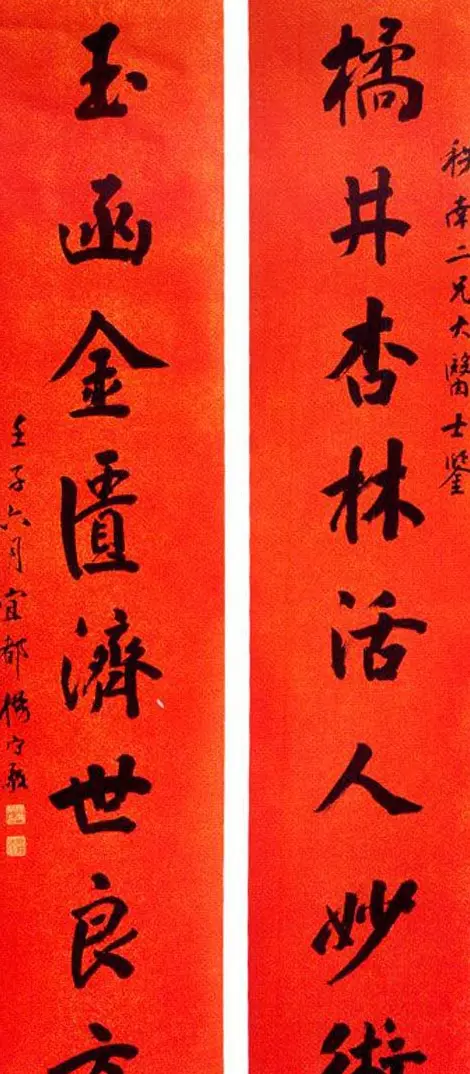 南二兄大醫士鑒
橘井杏林活人妙術
玉函金匱濟世良方
壬子六月宜都楊守敬